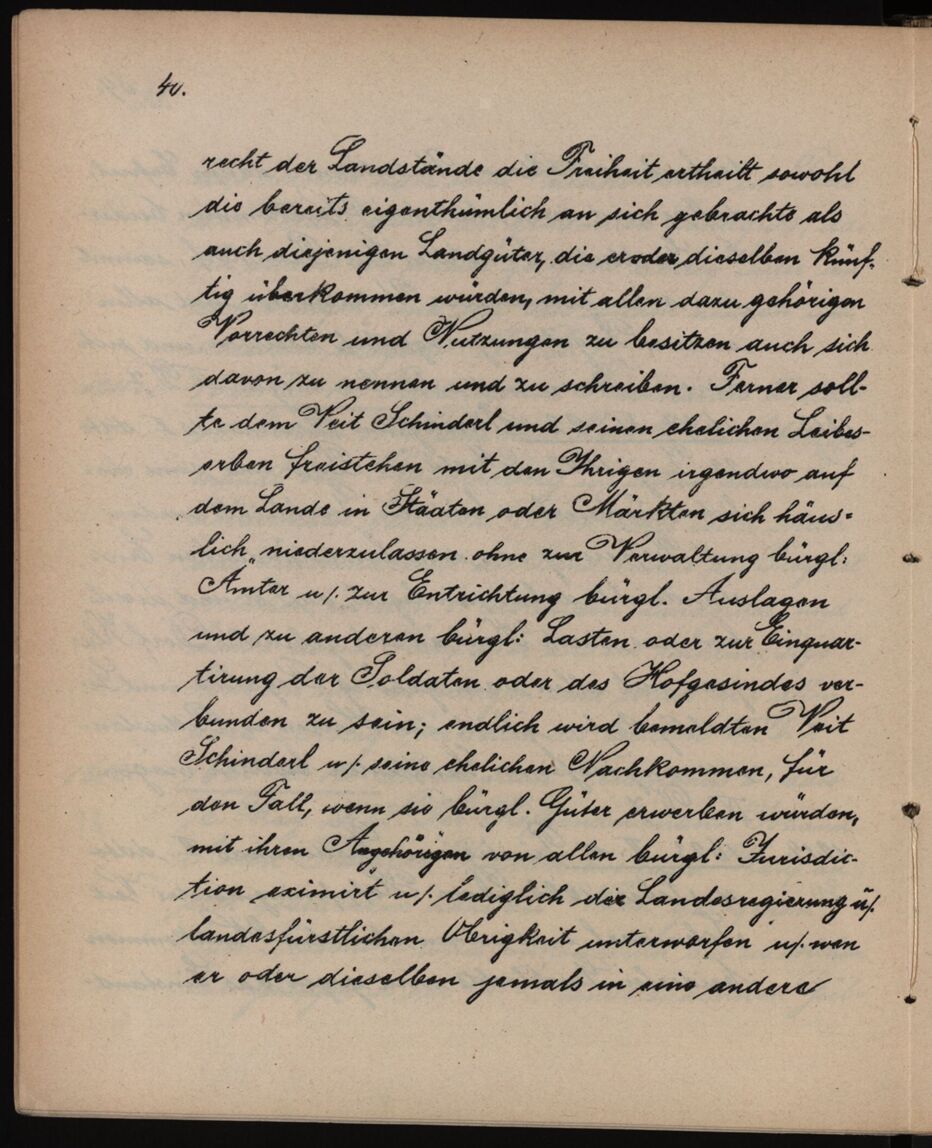 40.
recht der Landstände die Freiheit ertheilt sowohl
die bereits eigenthümlich an sich gebrachte als
auch diejenigen Landgüter, die er oder dieselben künf-
tig überkommen würden, mit allen dazu gehörigen
Vorrechten und Nutzungen zu besitzen auch sich
davon zu nennen und zu schreiben. Ferner soll-
te dem Veit Schinderl und seinen ehelichen Leibes-
erben freistehen mit den Ihrigen irgendwo auf
dem Lande in Stäaten oder Märkten sich häus-
lich niederzulassen ohne zur Verwaltung bürgl:
Ämter u/. zur Entrichtung bürgl. Auslagen
und zu anderen bürgl: Lasten oder zur Einquar-
tirung der Soldaten oder des Hofgesindes ver-
bunden zu sein; endlich wird bemeldten Veit
Schinderl u/. seine ehelichen Nachkommen, für
den Fall, wenn sie bürgl. Güter erwerben würden,
mit ihren Angehörigen von allen bürgl: Jurisdic-
tion eximirt u/. lediglich der Landesregierung u/.
landesfürstlichen Obrigkeit unterworfen u/. wen
er oder dieselben jemals in eine andere